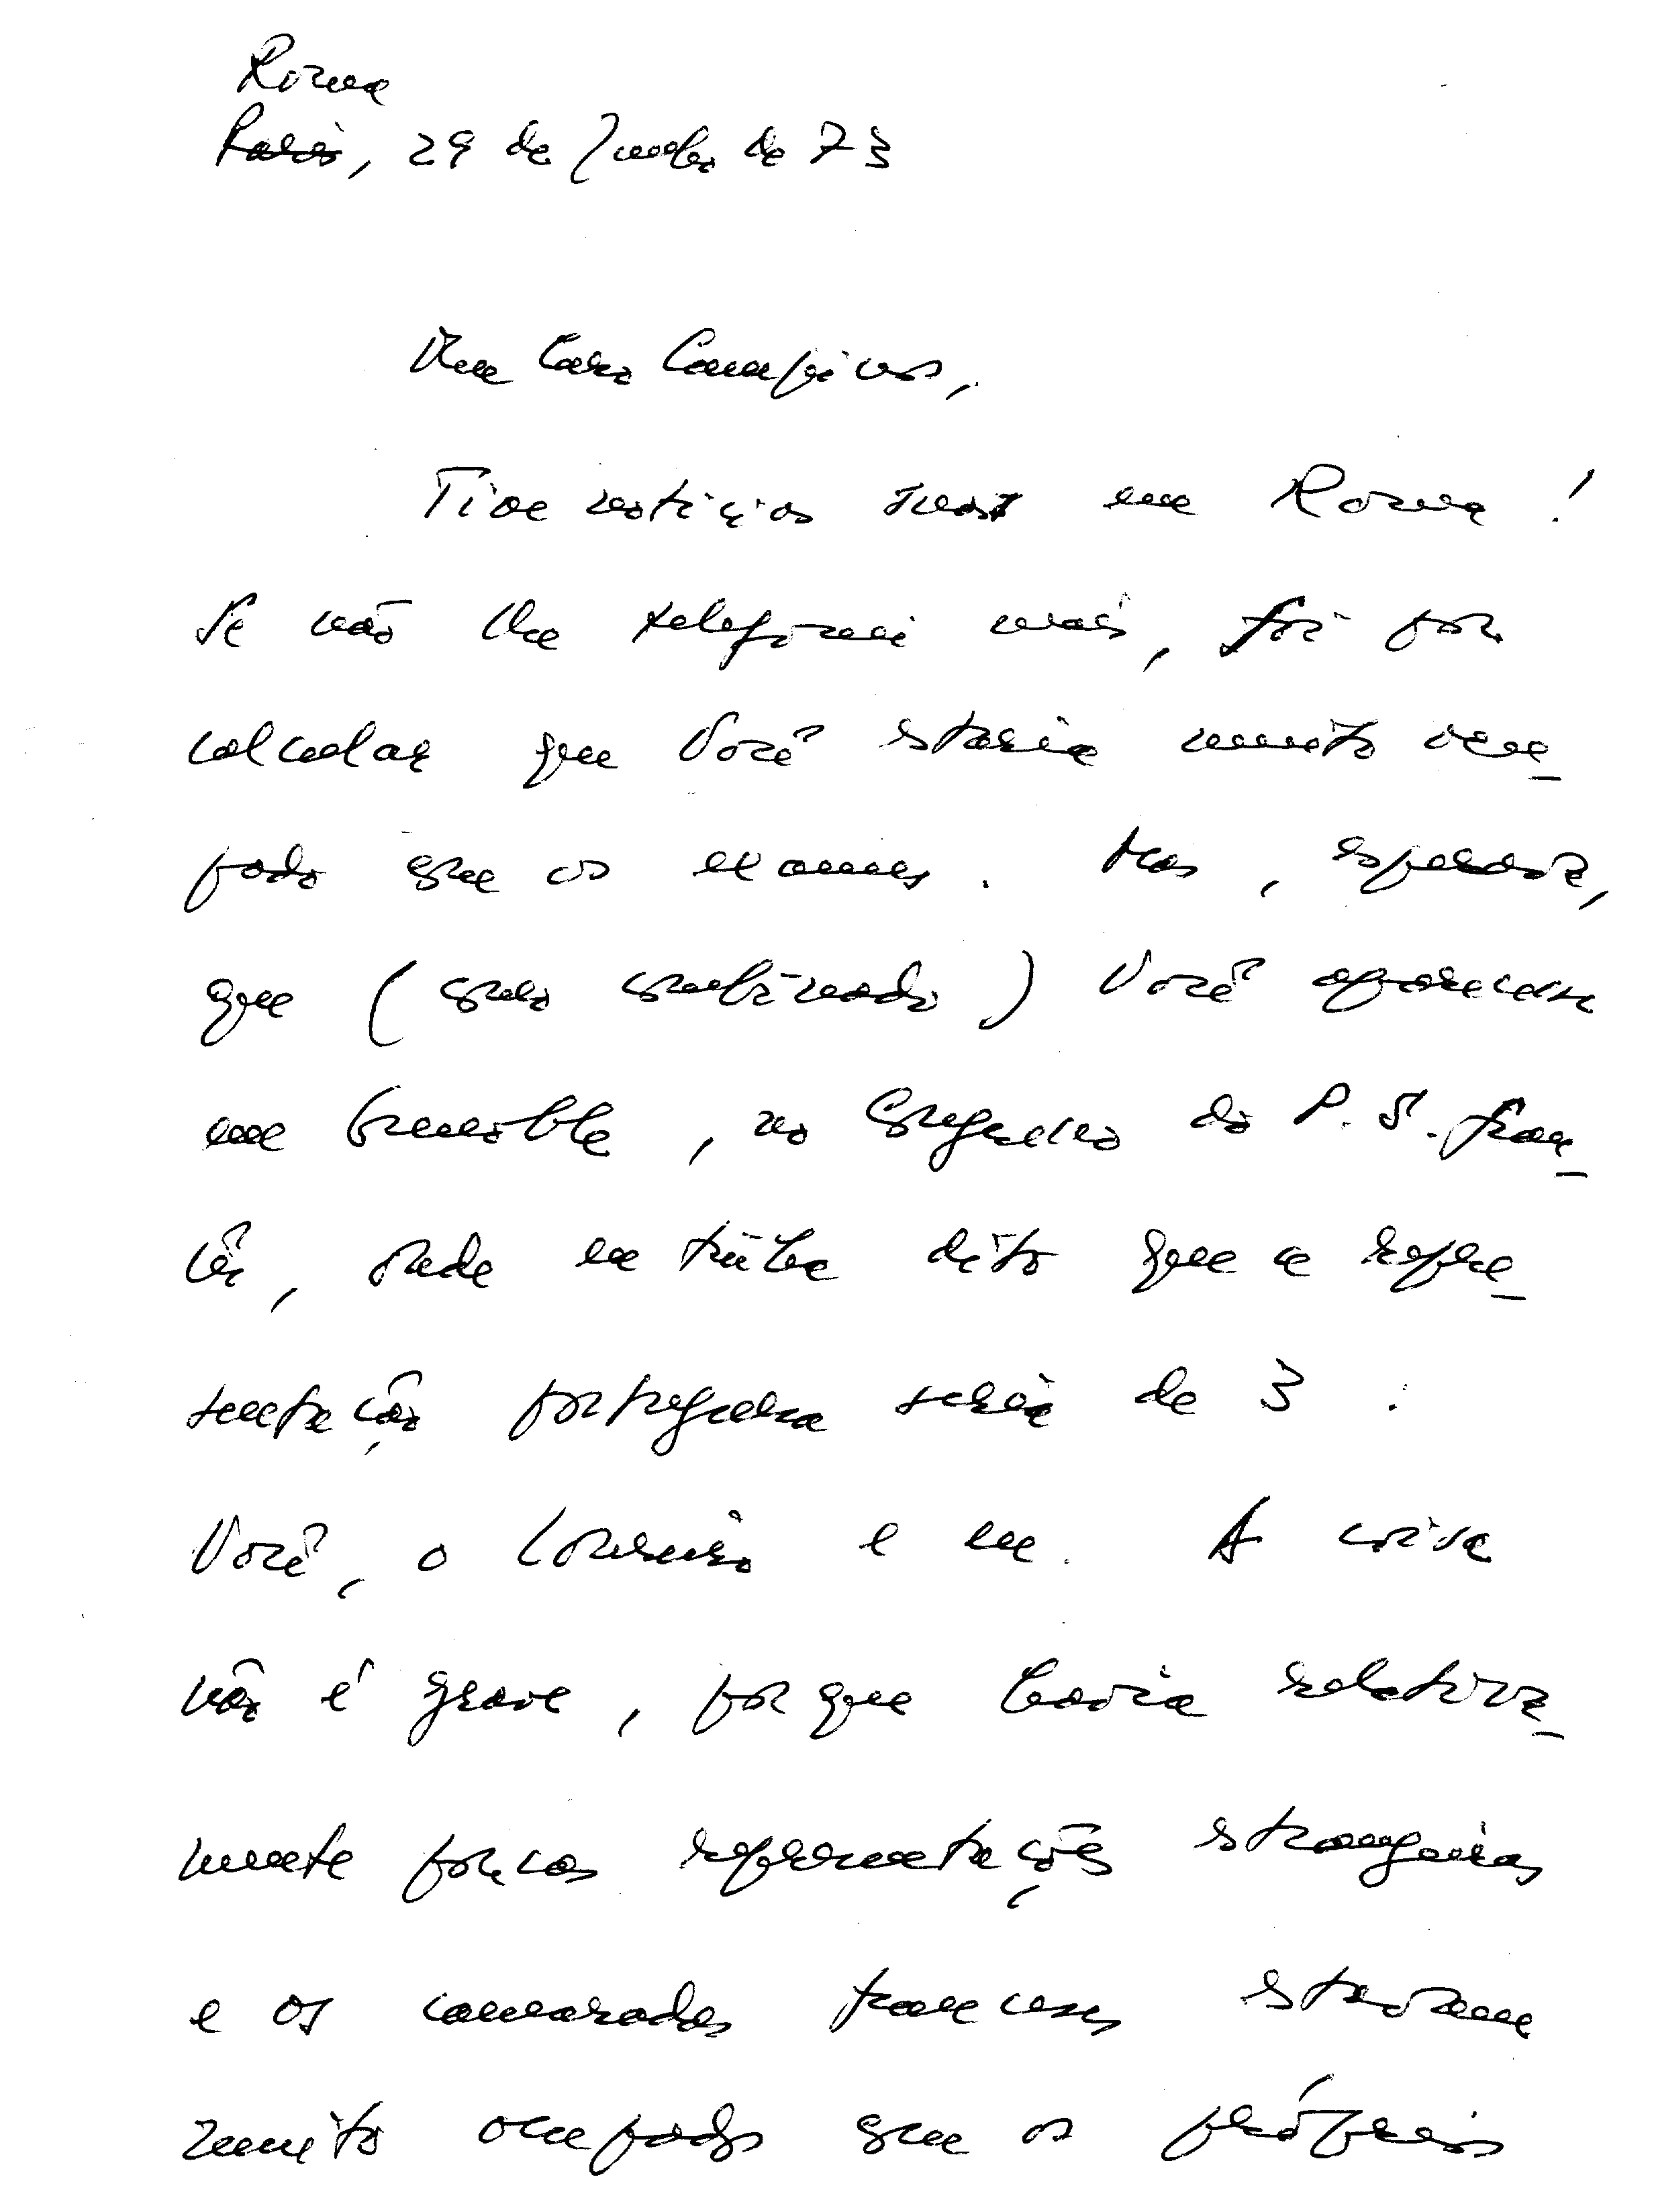 Roma
Paris, 29 de Junho de 73
Meu Caro Campinos,
Tive notícias suas em Roma!
Se não lhe telefonei mais, foi por
calcular que Você estaria muito ocu_
pado com os exames. Mas, esperava,
que (como combinado) Você aparecesse
em Grenoble, no Congresso do P.S. fran_
cês, onde eu tinha dito que a repre_
sentação portuguesa seria de 3:
Você, o Loureiro e eu. A coisa
não é grave, porque havia relativa_
mente poucas representações estrangeiras
e os camaradas franceses estavam
muito ocupados com os próprios